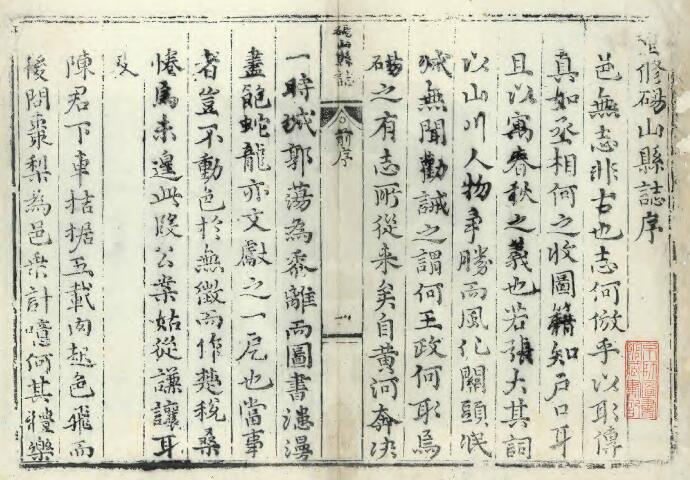 重修碭山縣誌序
邑無志非古也志何倣乎以耴傳
真如丞相何之收圖籍知戸口耳
且以寓春秋之義也若張大其詞
以山川人物爭勝而風化關頭泯
滅無聞勸誡之謂何王政何耴焉
碭之有志所從来矣自黄河奔决
碭山縣誌
前序
一
一時城郭蕩為黍離而圖書漶漫
盡飽蛇龍亦文獻之一厄也當事
者豈不動色於無徵而作楚稅桑
惓焉未遑此段公案姑從謙讓耳
及
陳君下車拮据五載肉起色飛而
後問棗梨為邑乘計噫何其禮樂